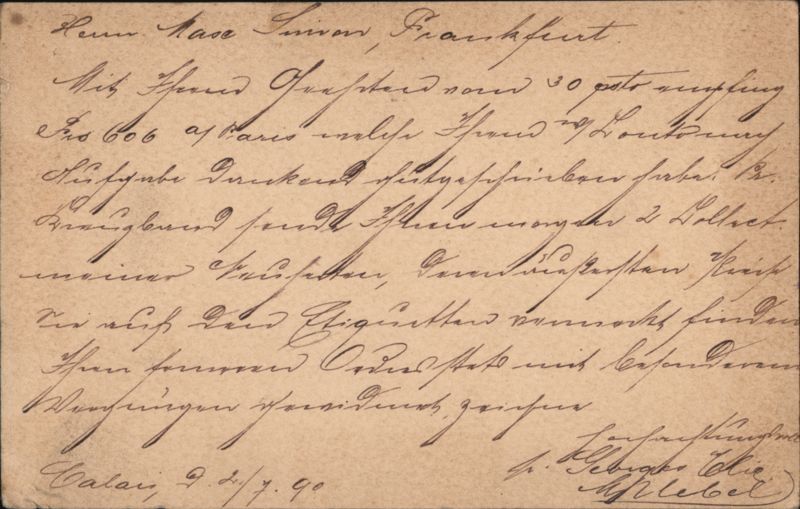 Herrn Max Simon, Frankfurt.
Mit Ihrem Geehrten vom 30 psto empfing
Frs 606 a/ Paris welche Ihrem w/ Conto nach
Aufgabe dankend gutgeschrieben habe. Pr.
Kreuzband sende Ihnen morgen 2 Collect.
meiner Neuheiten, deren äußersten Preise
Sie auf den Etiquetten vermerkt finden
Ihren ferneren Ordres stets mit besonderem
Vergnügen gewidmet, zeichne
hochachtungsvoll
p. Georges Elie
Calais, d. 2/7. 90